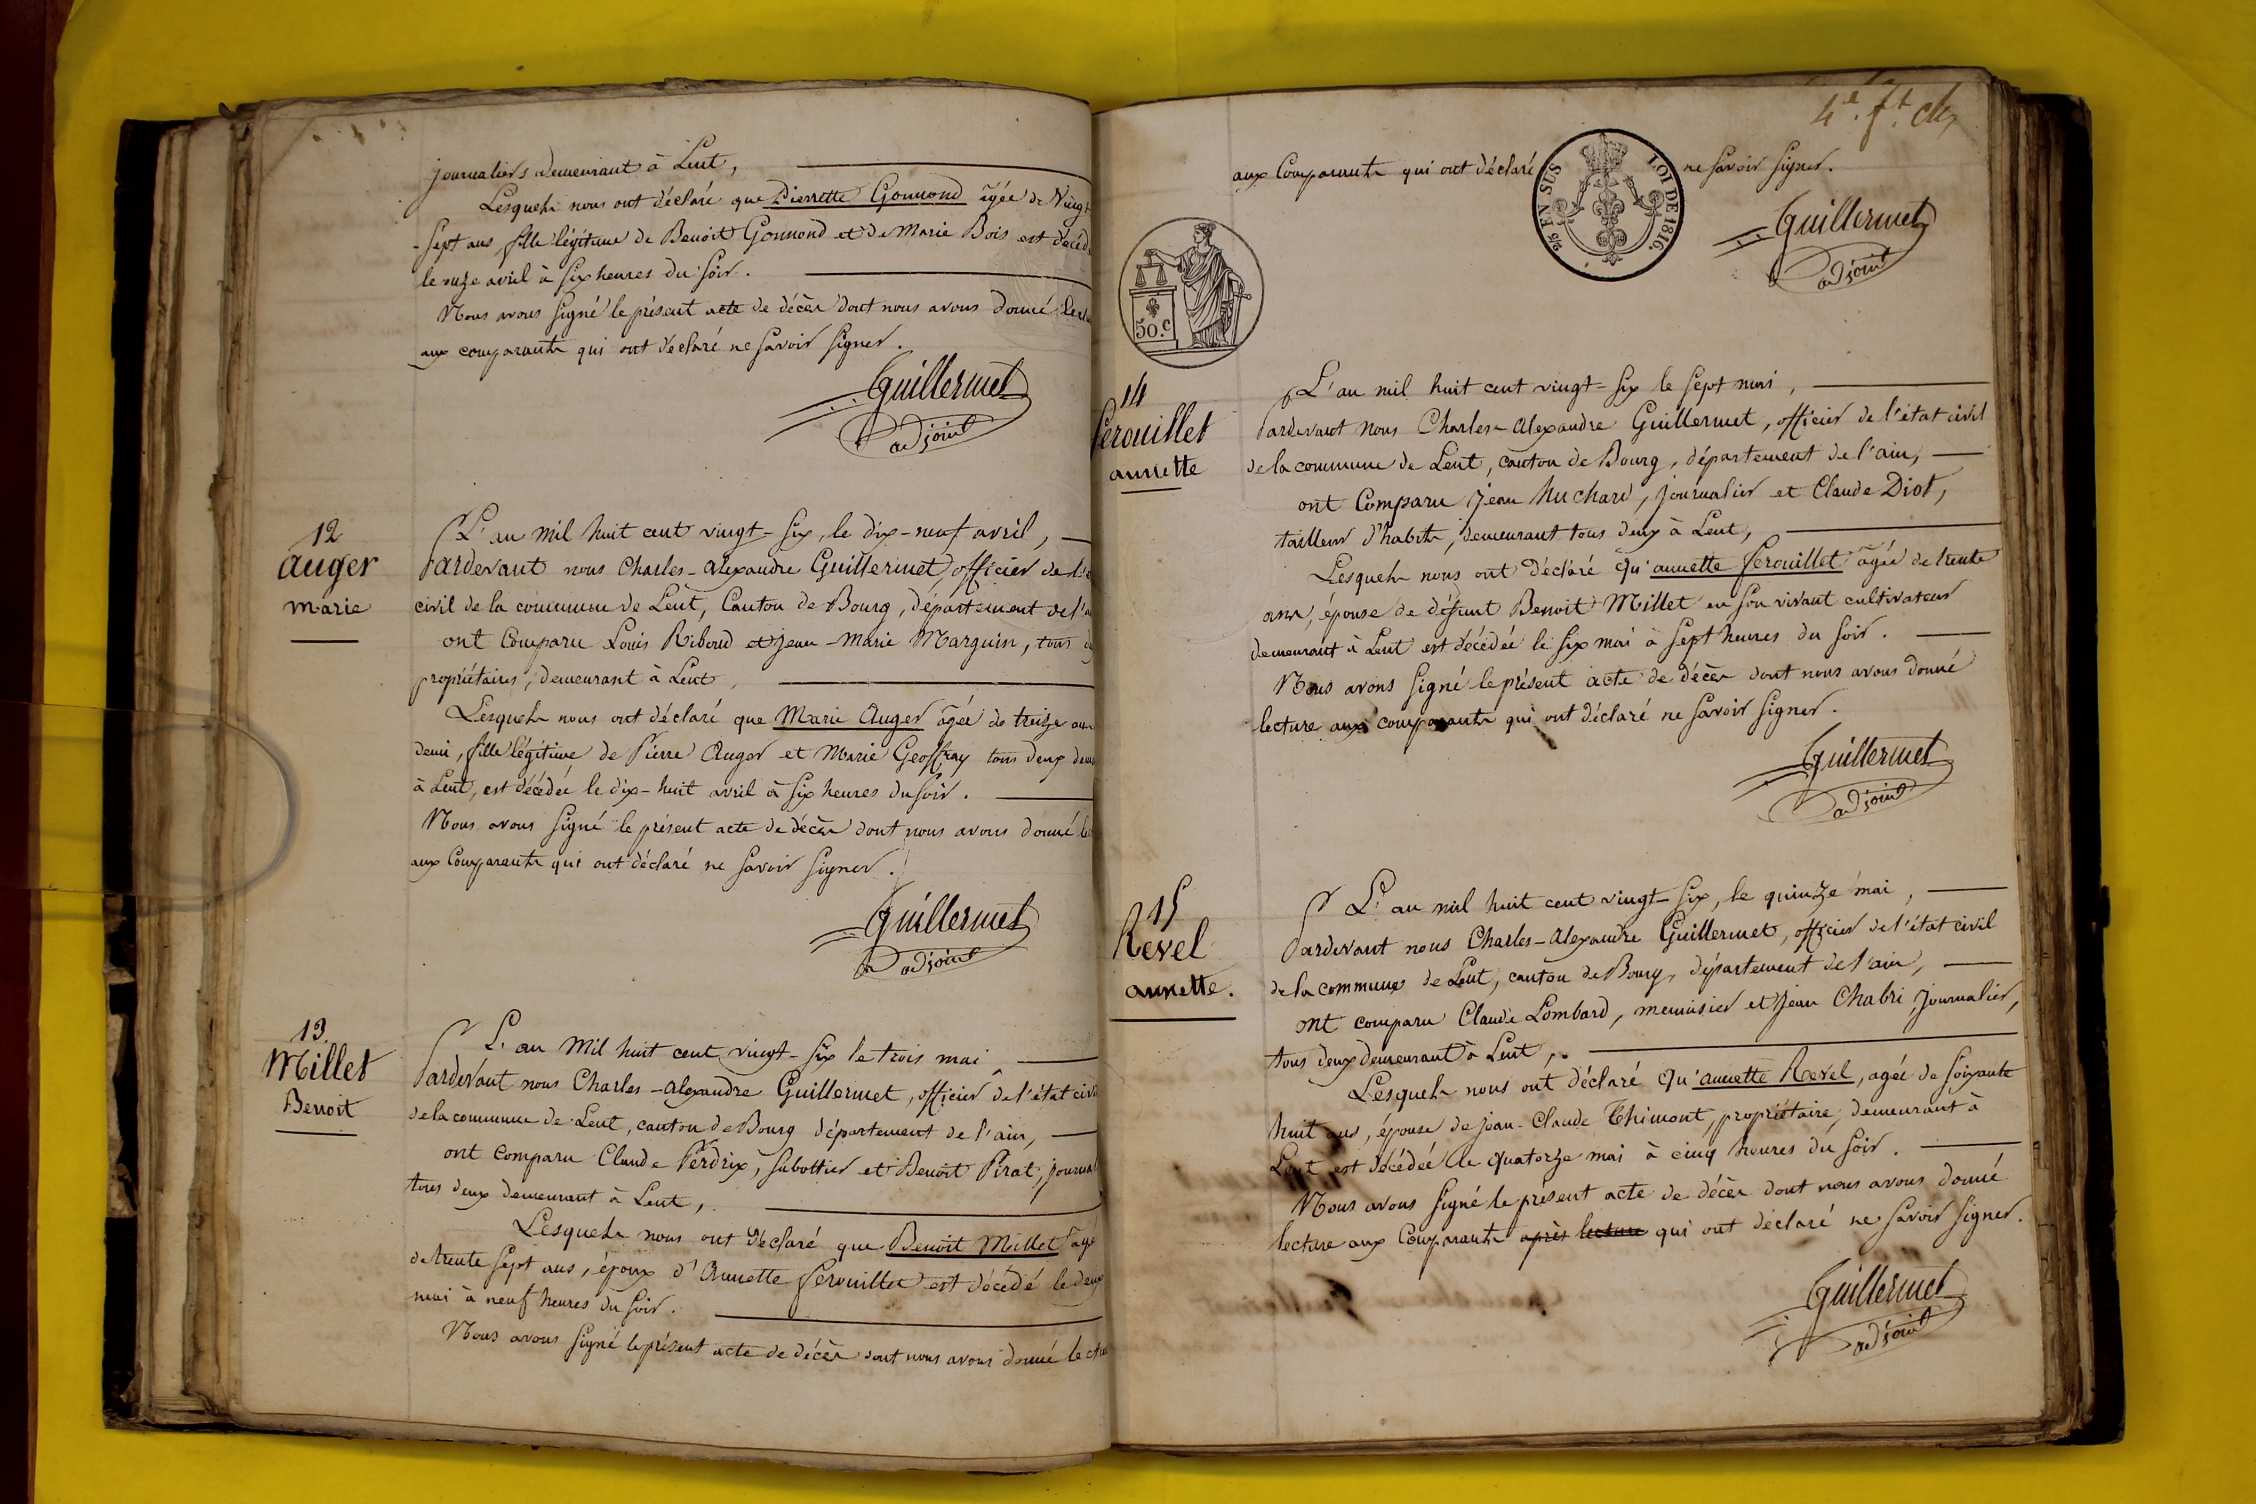 journaliers demeurant à Lent,
Lesquels nous ont déclaré que Pierrette Gonnond âgée de Vingt
-sept ans, fille légitime de Benoit Gonnond et de Marie Bois est décéd
le onze avril à six heures du soir.
Nous avons signé le présent acte de décès dont nous avons donné lec
aux comparants qui ont déclaré ne savoir signer.
Guillermet
adjoint
12
Auger
Marie
L'an mil huit cent vingt-six, le dix-neuf avril,
Pardevant nous Charles-Alexandre Guillermet, officier de l'é
civil de la commune de Lent, Canton de Bourg, département de l'a
ont Comparu Louis Riboud et Jean-Marie Marguin, tous d
propriétaires, demeurant à Lent,
Lesquels nous ont déclaré que Marie Auger âgée de treize ans
demi, fille légitime de Pierre Auger et Marie Geoffray tous deux dem
à Lent, est décédée le dix-huit avril à six heures du soir.
Nous avons signé le présent acte de décès dont nous avons donné le
aux Comparants qui ont déclaré ne savoir signer.
Guillermet
adjoint
13.
Millet
Benoit
L'an Mil huit cent vingt-six le trois mai,
Pardevant nous Charles-Alexandre Guillermet, officier de l'état civi
de la commune de Lent, canton de Bourg département de l'ain,
ont Comparu Claude Perdrix, sabottier et Benoit Pirat, journal
tous deux demeurant à Lent,
Lesquels nous ont déclaré que Benoit Millet âgé
de trente sept ans, époux d'Annette ferouillet est décédé le deux
mai à neuf heures du soir.
Nous avons signé le présent acte de décès dont nous avons donné lectu
4e ft
aux Comparants qui ont déclaré ne savoir signer.
2/5 EN SUS LOI DE 1816.
Guillermet
adjoint
50.c
14
ferouillet
annette
L'an mil huit cent vingt-six le sept mai,
Pardevant nous Charles-Alexandre Guillermet, officier de l'état civil
de la commune de Lent, canton de Bourg, département de l'ain,
ont Comparu Jean huchard, journalier et Claude Diot,
tailleur d'habits, demeurant tous deux à Lent,
Lesquels nous ont déclaré qu'annette ferouillet âgée de trente
ans, épouse de défunt Benoit Millet en son vivant cultivateur
demeurant à Lent est décédée le six mai à sept heures du soir.
Nous avons signé le présent acte de décès dont nous avons donné
lecture aux comparants qui ont déclaré ne savoir signer.
Guillermet
adjoint
15
Revel
annette.
L'an mil huit cent vingt-six, le quinze mai,
Pardevant nous Charles-Alexandre Guillermet, officier de l'état civil
de la commune de Lent, canton de Bourg, département de l'ain,
ont comparu Claude Lombard, menuisier et Jean Chabri, journalier,
tous deux demeurant à Lent,
Lesquels nous ont déclaré qu'annette Revel, agée de soixante
huit ans, épouse de Jean-Claude Thimont, propriétaire, demeurant à
Lent est décédée le quatorze mai à cinq heures du soir.
Nous avons signé le présent acte de décès dont nous avons donné
lecture aux Comparants après lecture qui ont déclaré ne savoir signer.
Guillermet
adjoint